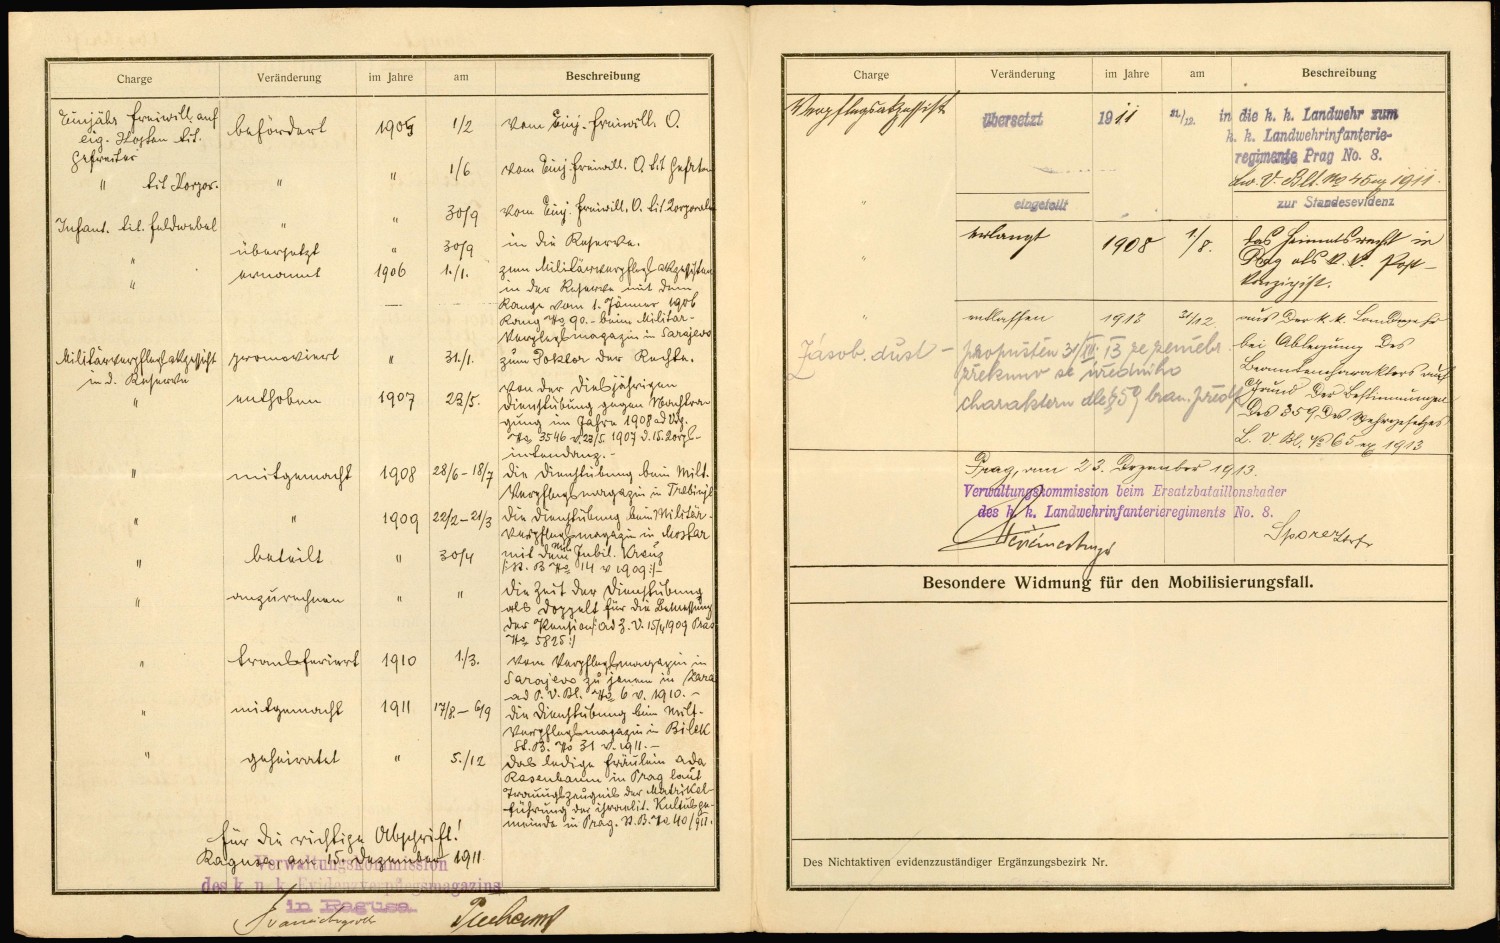 Charge Veränderung im Jahre am Beschreibung
Einjähr. freiwill. auf
eig. Kosten tit.
Gefreiter
befördert 1905 1/2 vom Einj. freiwill. O.
" tit. Korpor. " " 1/6 vom Einj. freiwill. O. tit. Gefrten
Infant. tit. Feldwebel " " 30/9 vom Einj. freiwill. O. tit. Korporalen
" übersetzt " 30/9 in die Reserve.
" ernannt 1906 1./1. zum Militärverpflegs akzessisten
in der Reserve mit dem
Range vom 1. Jänner 1906
Rang No 90.- beim Militär-
Verpflegsmagazin in Sarajevo
Militärverpflegsakzessist
in d. Reserve
promoviert " 31./1. zum Doktor der Rechte.
" enthoben 1907 23/5. von der diesjährigen
Dienstübung gegen Nachtra-
gung im Jahre 1908 ad
No 3546 v. 23/5. 1907 d. 15. Korps-
intendanz.-
" mitgemacht 1908 28/6 - 18/7 die Dienstübung beim Milt.
Verpflegsmagazin in Trebinje
" " 1909 22/2 - 21/3 die Dienstübung beim Militär-
verpflegsmagazin in Mostar
" beteilt " 30/4 mit dem Mil. Jubil. Kreuz
/: St. B. No 14 v 1909 :/-
" anzurechnen " " die Zeit der Dienstübung
als doppelt für die Bemessung
der Pension /: ad Z. V. 15/4 1909 Präs
No 5825 :/
" transferiert 1910 1./3. vom Verpflegsmagazin in
Sarajevo zu jenem in Zara
ad P. V. Bl. No 6 v. 1910. -
" mitgemacht 1911 17/8. - 6/9 die Dienstübung beim Milt-
Verpflegsmagazin in Bilek
St. B. No 31 v. 1911. -
" geheiratet " 5./12 das ledige Fräulein Ada
Rosenbaum in Prag laut
Trauungszeugnis der Matrikel-
führung der israelit. Kultusge-
meinde in Prag. St. B. No 40/911.
Für die richtige Abschrift!
Ragusa am 15. Dezember 1911
Verwaltungskommission
des k. u. k. Evidenzverpflegsmagazins
in Ragusa.
Charge Veränderung im Jahre am Beschreibung
Verpflegsakzessist übersetzt 1911 21/12. in die k. k. Landwehr zum
k. k. Landwehrinfanterie-
regimente Prag No. 8.
Lw. V. Blt. No 45 ex 1911.
" eingeteilt " zur Standesevidenz
" erlangt 1908 1/8. das Heimatsrecht in
Prag als k. k. Post-
konzipist.
" entlassen 1913 31/12 aus der k. k. Landwehr
bei Ablegung des
Beamtencharakters auf
Grund der Bestimmungen
des § 59 des Wehrgesetzes
L. V. Bl. No 65 ex 1913
Zásob. důst - propuštěn 31/XII. 13 ze zeměbr.
zřeknuv se úředního
charakteru dle § 59 bran. předp
Prag, am 23. Dezember 1913.
Verwaltungskommission beim Ersatzbataillonskader
des k. k. Landwehrinfanterieregiments No. 8.
Besondere Widmung für den Mobilisierungsfall.
Des Nichtaktiven evidenzzuständiger Ergänzungsbezirk Nr.